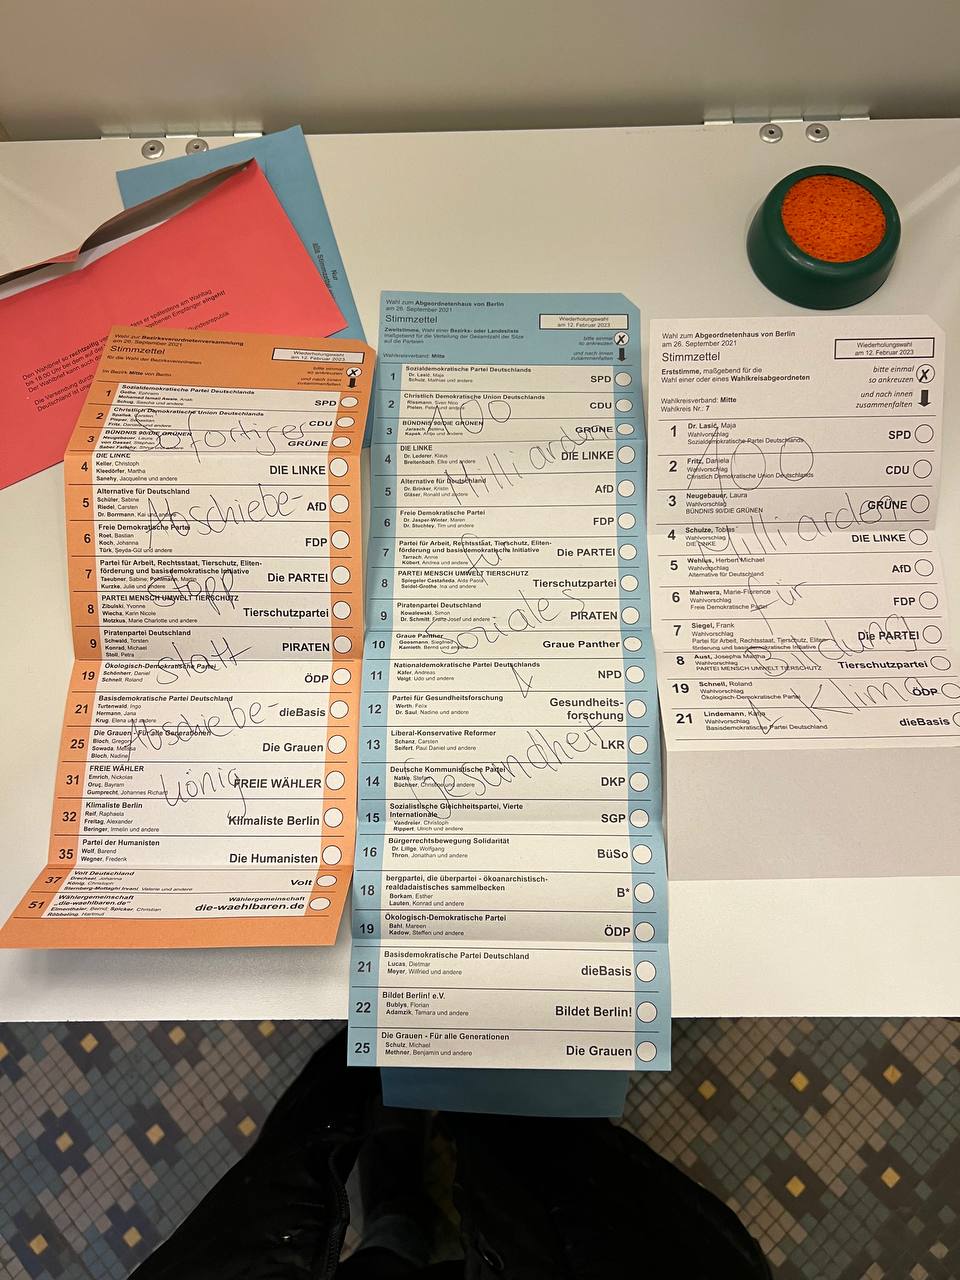 Nur
alle Stimmzettel
spätestens am Wahltag
eingeht!
Wahl zur Bezirksverordnetenversammlung
am 26. September 2021
Stimmzettel
für die Wahl der Bezirksverordneten
Im Bezirk Mitte von Berlin
Wiederholungswahl
am 12. Februar 2023
bitte einmal
so ankreuzen
und nach innen
zusammenfalten
1 Sozialdemokratische Partei Deutschlands SPD
2 Christlich Demokratische Union Deutschlands CDU
3 BÜNDNIS 90/DIE GRÜNEN GRÜNE
Sofortiger
4 DIE LINKE DIE LINKE
Keller, Christoph
Kleedörfer, Martha
Sanehy, Jacqueline und andere
5 Alternative für Deutschland AfD
Schüler, Sabine
Riedel, Carsten
Dr. Borrmann, Kai und andere
Abschiebe-
6 Freie Demokratische Partei FDP
Roet, Bastian
Koch, Johanna
Türk, Şeyda-Gül und andere
7 Partei für Arbeit, Rechtsstaat, Tierschutz, Eliten-
förderung und basisdemokratische Initiative Die PARTEI
Taeubner, Sabine; Pohlmann, Martin
Kurzke, Julia und andere
stopp
8 PARTEI MENSCH UMWELT TIERSCHUTZ Tierschutzpartei
Zibulski, Yvonne
Wiecha, Karin Nicole
Motzkus, Marie Charlotte und andere
9 Piratenpartei Deutschland PIRATEN
Schwald, Torsten
Konrad, Michael
Stoll, Petra
statt
19 Ökologisch-Demokratische Partei ÖDP
Schönherr, Daniel
Schnell, Roland
21 Basisdemokratische Partei Deutschland dieBasis
Turtenwald, Ingo
Hermann, Jana
Krug, Elena und andere
Abschiebe-
25 Die Grauen - Für alle Generationen Die Grauen
Bloch, Gregor
Sowada, Melissa
Bloch, Nadine
31 FREIE WÄHLER FREIE WÄHLER
Emrich, Nickolas
Oruç, Bayram
Gumprecht, Johannes Richard
könig
32 Klimaliste Berlin Klimaliste Berlin
Reif, Raphaela
Freitag, Alexander
Beringer, Irmelin und andere
35 Partei der Humanisten Die Humanisten
Wolf, Barend
Wegner, Frederik
37 Volt Deutschland Volt
Drechsel, Johanna
König, Christoph
Sternberg-Mottaghi Irvani, Valerie und andere
51 Wählergemeinschaft
„die-waehlbaren.de“ Wählergemeinschaft
die-waehlbaren.de
Elmenthaler, Bernd; Spicker, Christian
Röbbeling, Hartmut
Wahl zum Abgeordnetenhaus von Berlin
am 26. September 2021
Stimmzettel
Zweitstimme, Wahl einer Bezirks- oder Landesliste
maßgebend für die Verteilung der Gesamtzahl der Sitze
auf die Parteien
Wahlkreisverband: Mitte
Wiederholungswahl
am 12. Februar 2023
bitte einmal
so ankreuzen
und nach innen
zusammenfalten
1 Sozialdemokratische Partei Deutschlands SPD
Dr. Lasić, Maja
Schulz, Mathias und andere
2 Christlich Demokratische Union Deutschlands CDU
3 BÜNDNIS 90/DIE GRÜNEN GRÜNE
100
4 DIE LINKE DIE LINKE
Dr. Lederer, Klaus
Breitenbach, Elke und andere
Milliarden
5 Alternative für Deutschland AfD
Dr. Brinker, Kristin
Gläser, Ronald und andere
6 Freie Demokratische Partei FDP
Dr. Jasper-Winter, Maren
7 Partei für Arbeit, Rechtsstaat, Tierschutz, Eliten-
förderung und basisdemokratische Initiative Die PARTEI
für
8 PARTEI MENSCH UMWELT TIERSCHUTZ Tierschutzpartei
9 Piratenpartei Deutschland PIRATEN
Kowalewski, Simon
Dr. Schmitt, Franz-Josef und andere
Soziales
10 Graue Panther Graue Panther
11 Nationaldemokratische Partei Deutschlands NPD
Käfer, Andreas
Voigt, Udo und andere
&
12 Partei für Gesundheitsforschung Gesundheits-
forschung
Werth, Felix
Dr. Saul, Nadine und andere
13 Liberal-Konservative Reformer LKR
Schanz, Carsten
Seifert, Paul Daniel und andere
Gesundheit
14 Deutsche Kommunistische Partei DKP
Natke, Stefan
Büchner, Christine und andere
15 Sozialistische Gleichheitspartei, Vierte
Internationale SGP
Vandreier, Christoph
Rippert, Ulrich und andere
16 Bürgerrechtsbewegung Solidarität BüSo
Dr. Lillge, Wolfgang
Thron, Jonathan und andere
18 bergpartei, die überpartei - ökoanarchistisch-
realdadaistisches sammelbecken B*
Borkam, Esther
Lauten, Konrad und andere
19 Ökologisch-Demokratische Partei ÖDP
Bahl, Mareen
Kadow, Steffen und andere
21 Basisdemokratische Partei Deutschland dieBasis
Lucas, Dietmar
Meyer, Wilfried und andere
22 Bildet Berlin! e.V. Bildet Berlin!
Bublys, Florian
Adamzik, Tamara und andere
25 Die Grauen - Für alle Generationen Die Grauen
Schulz, Michael
Methner, Benjamin und andere
Wahl zum Abgeordnetenhaus von Berlin
am 26. September 2021
Stimmzettel
Erststimme, maßgebend für die
Wahl einer oder eines Wahlkreisabgeordneten
Wahlkreisverband: Mitte
Wahlkreis Nr.: 7
Wiederholungswahl
am 12. Februar 2023
bitte einmal
so ankreuzen
und nach innen
zusammenfalten
1 Dr. Lasić, Maja SPD
Wahlvorschlag
Sozialdemokratische Partei Deutschlands
2 Fritz, Daniela CDU
Wahlvorschlag
Christlich Demokratische Union Deutschlands
100
3 Neugebauer, Laura GRÜNE
Wahlvorschlag
BÜNDNIS 90/DIE GRÜNEN
Milliarden
4 Schulze, Tobias DIE LINKE
Wahlvorschlag
DIE LINKE
5 Wehlus, Herbert Michael AfD
Wahlvorschlag
Alternative für Deutschland
6 Mahwera, Marie-Florence FDP
Wahlvorschlag
Freie Demokratische Partei
für
7 Siegel, Frank Die PARTEI
Wahlvorschlag
Partei für Arbeit, Rechtsstaat, Tierschutz, Eliten-
förderung und basisdemokratische Initiative
Bildung
8 Aust, Josepha Martha Tierschutzpartei
Wahlvorschlag
PARTEI MENSCH UMWELT TIERSCHUTZ
19 Schnell, Roland ÖDP
Wahlvorschlag
Ökologisch-Demokratische Partei
& Klima
21 Lindemann, Katja dieBasis
Wahlvorschlag
Basisdemokratische Partei Deutschland